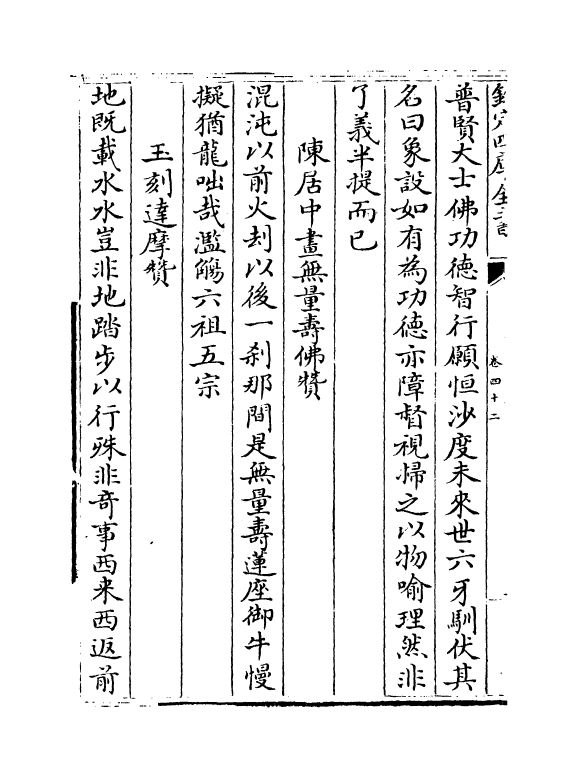 欽定四庫全書
卷四十二
普賢大士佛功德智行願恒沙度未來世六牙馴伏其
名曰象設如有為功德亦障督視歸之以物喻理然非
了義半提而已
陳居中畫無量壽佛贊
混沌以前火刦以後一刹那間是無量壽蓮座御牛慢
擬猶龍咄哉濫觴六祖五宗
玉刻達摩贊
地既載水水豈非地踏步以行殊非奇事西来西返前